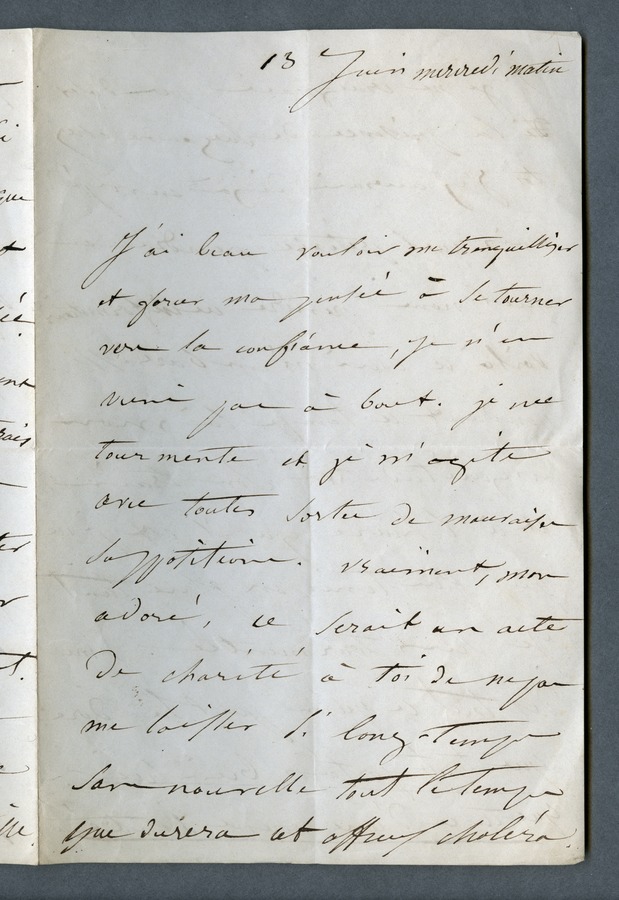 13 Juin mercredi matin
J'ai beau vouloir me tranquilliser
et forcer ma pensée à se tourner
vers la confiance, je n'en
viens pas à bout. je me
tourmente et je m'agite
avec toutes sortes de mauvaises
suppositions. vraiment, mon
adoré, ce serait un acte
de charité à toi de ne pas
me laisser si long-temps
sans nouvelle tout le temps
que durera cet affreux choléra.